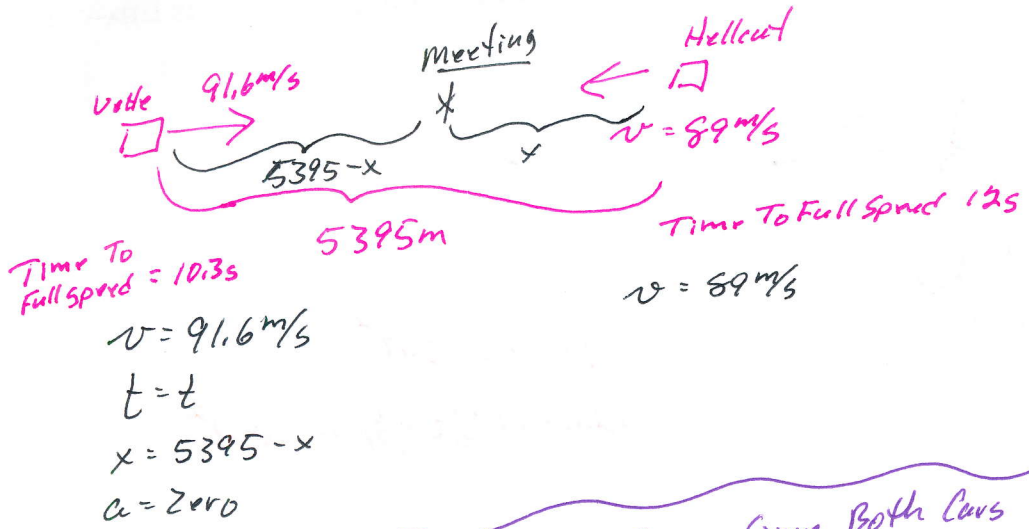 Meeting
Hellcat
Vette
91.6 m/s
x
v = 89 m/s
5395-x
x
5395m
Time To Full Speed 12s
Time To
Full Speed = 10.3s
v = 89 m/s
v = 91.6 m/s
t = t
x = 5395-x
a = Zero
Both Cars